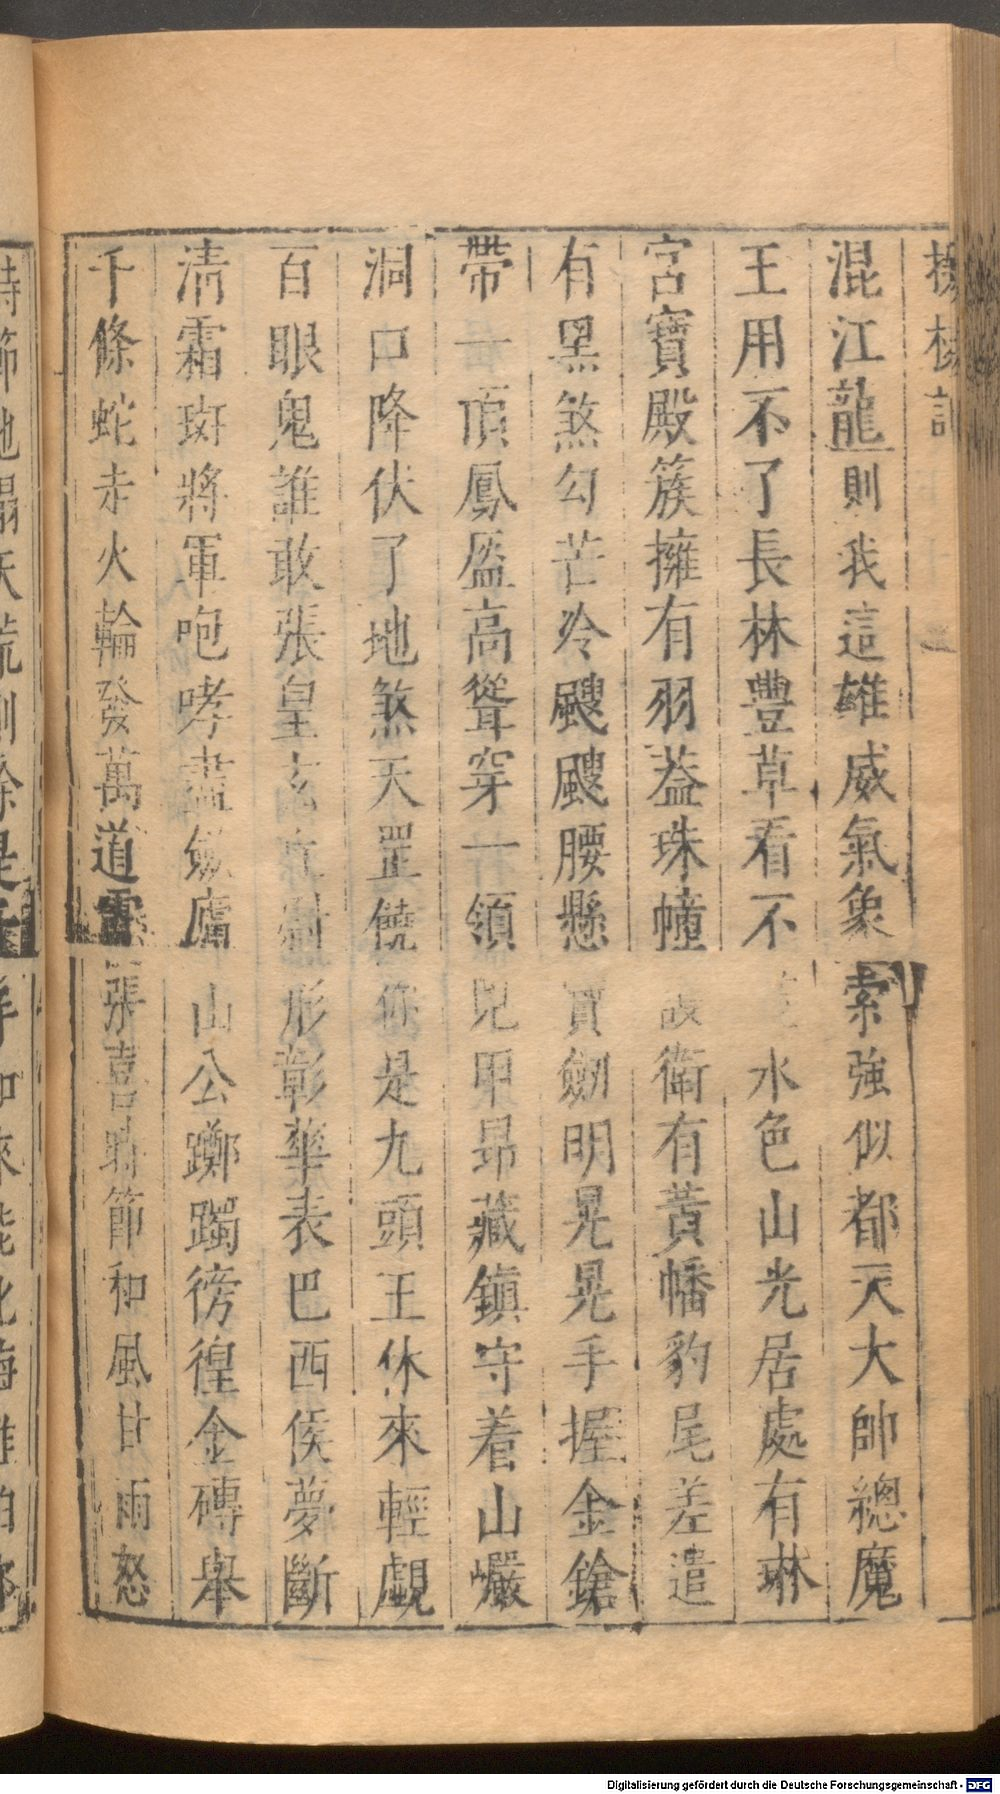 混江龍則我這雄威氣象索強似都天大帥總魔
王用不了長林豐草看不水色山光居處有琳
宮寶殿簇擁有羽蓋珠幢衛有黃幡豹尾差遣
有黑煞勾芒冷颼颼腰懸寶劒明晃晃手握金鎗
帶一頂鳳盔高聳穿一領甲昂藏鎮守着山巖
洞口降伏了地煞天罡饒你是九頭王休來輕覷
百眼鬼誰敢張皇玄形彰華表巴西侯夢斷
清霜斑將軍咆哮盡劒廬山公躑躅徬徨金磚舉
千條蛇赤火輪發萬道張喜時節和風甘雨怒
Digitalisierung gefördert durch die Deutsche Forschungsgemeinschaft - DFG